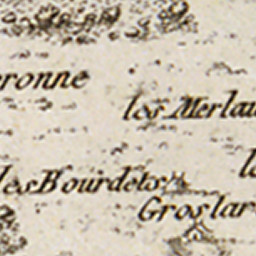 ronne
les Merlau
les Bourdets
l
Groslar